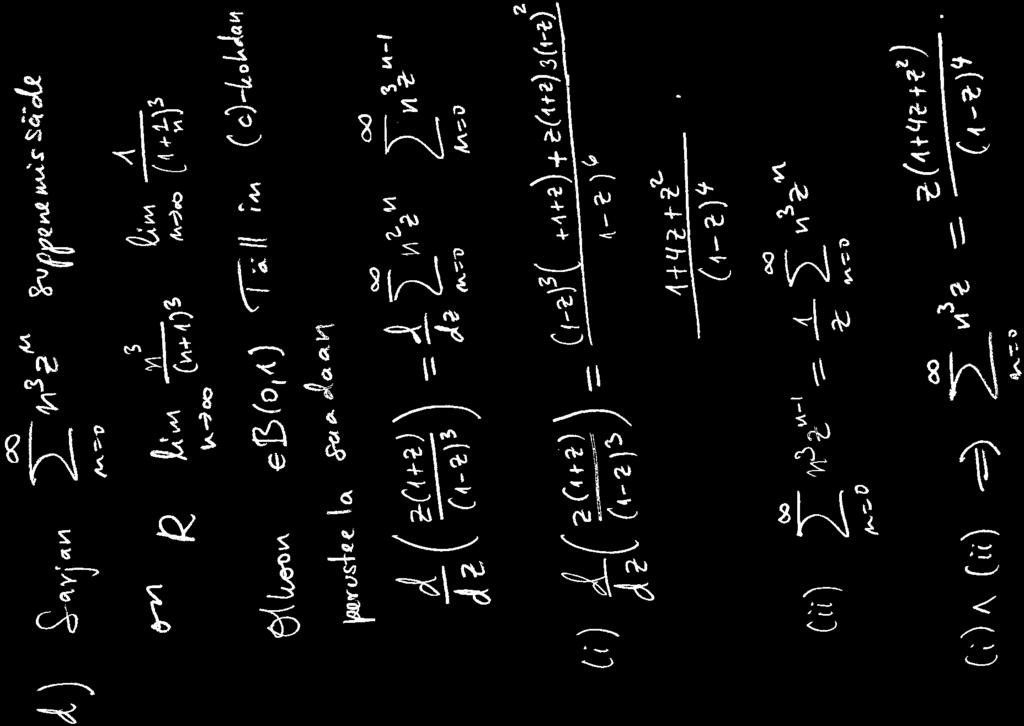 d) Sarjan ∑_{n=0}^{∞} n³zⁿ suppenemissäde
on R lim_{n→∞} n³/(n+1)³ lim_{n→∞} 1/(1+1/n)³
Olkoon ∈B(0,1) Tällöin (c)-kohdan
perusteella saadaan
d/dz (z(1+z)/(1-z)³) = d/dz ∑_{n=0}^{∞} n²zⁿ ∑_{n=0}^{∞} n³z^{n-1}
(i) d/dz (z(1+z)/(1-z)³) = ((1-z)³( +1+z)+z(1+z)3(1-z)²)/(1-z)⁶
(1+4z+z²)/(1-z)⁴ .
(ii) ∑_{n=0}^{∞} n³z^{n-1} = 1/z ∑_{n=0}^{∞} n³zⁿ
(i) ∧ (ii) ⇒ ∑_{n=0}^{∞} n³z = z(1+4z+z²)/(1-z)⁴ .